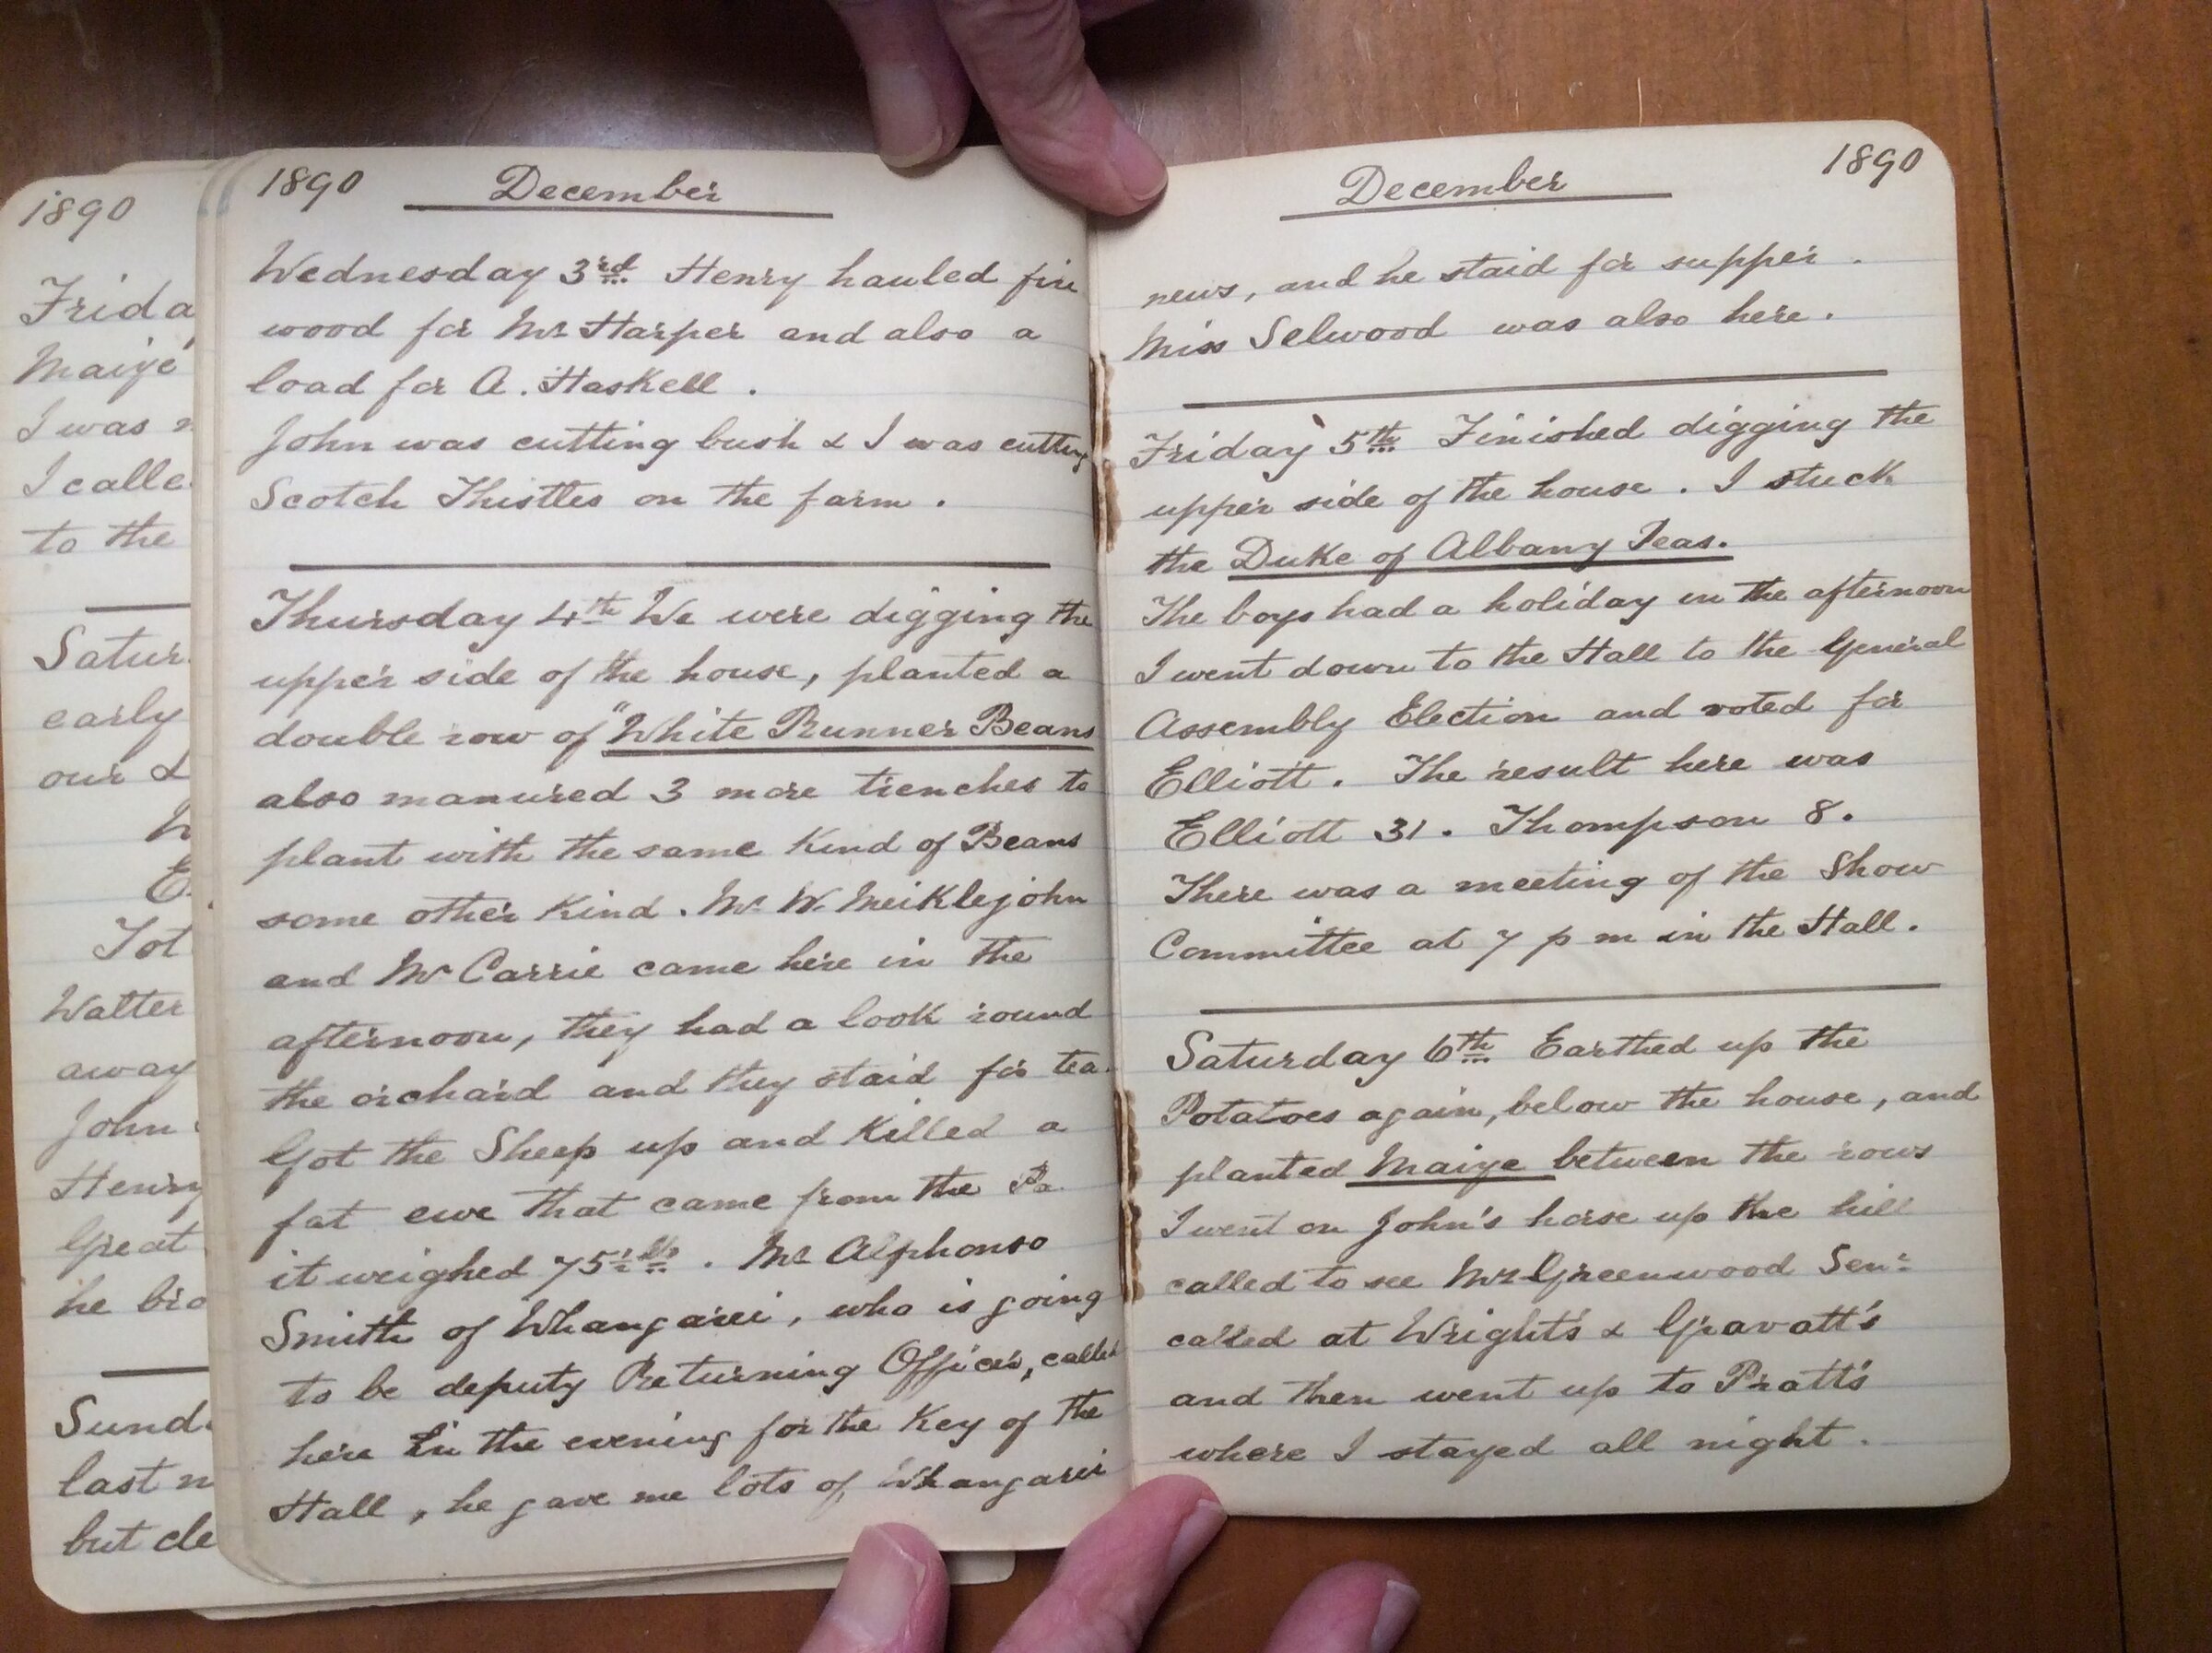 1890
Frida
Maize
I was
I calle
to the
Satur
early
our &
Tot
Walter
away
John
Henry
Great
he bro
Sund
last n
but cle
1890 December
Wednesday 3rd Henry hauled fire
wood for Mr Harper and also a
load for A. Haskell.
John was cutting bush & I was cutting
Scotch Thistles on the farm.
Thursday 4th We were digging the
upper side of the house, planted a
double row of "White Runner Beans
also manured 3 more trenches to
plant with the same kind of Beans
some other kind. Mr W. Meiklejohn
and Mr Carrie came here in the
afternoon, they had a look round
the orchard and they staid for tea.
Got the Sheep up and killed a
fat ewe that came from the Pa
it weighed 75½ lbs. Mr Alphonso
Smith of Whangarei, who is going
to be deputy Returning Officer, called
here in the evening for the Key of the
Hall, he gave me lots of Whangarei
December 1890
news, and he staid for supper.
Miss Selwood was also here.
Friday 5th Finished digging the
upper side of the house. I stuck
the Duke of Albany Peas.
The boys had a holiday in the afternoon
I went down to the Hall to the General
Assembly Election and voted for
Elliott. The result here was
Elliott 31. Thompson 8.
There was a meeting of the Show
Committee at 7 p m in the Hall.
Saturday 6th Earthed up the
Potatoes again, below the house, and
planted Maize between the rows
I went on John's horse up the hill
called to see Mr Greenwood Sen:
called at Wright's & Gravatt's
and then went up to Pratt's
where I stayed all night.